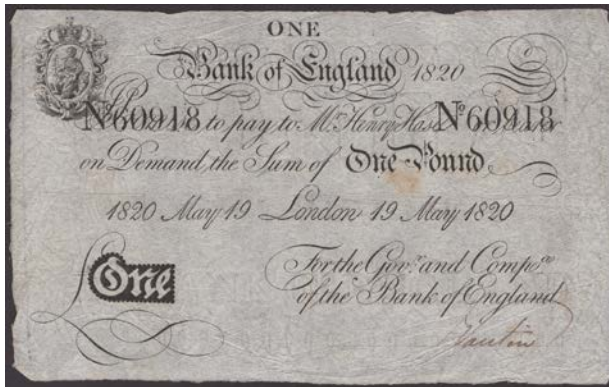 ONE
Bank of England 1820
Nº60918 to pay to Mr. Henry Hase Nº60918
on Demand, the Sum of One Pound
1820 May 19 London 19 May 1820
£One
For the Govr. and Compa.
of the Bank of England